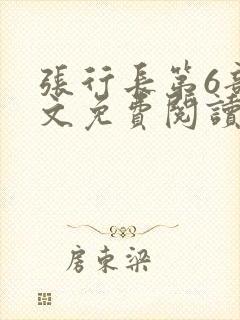 張行長第6
文免費閱讀
房東梁